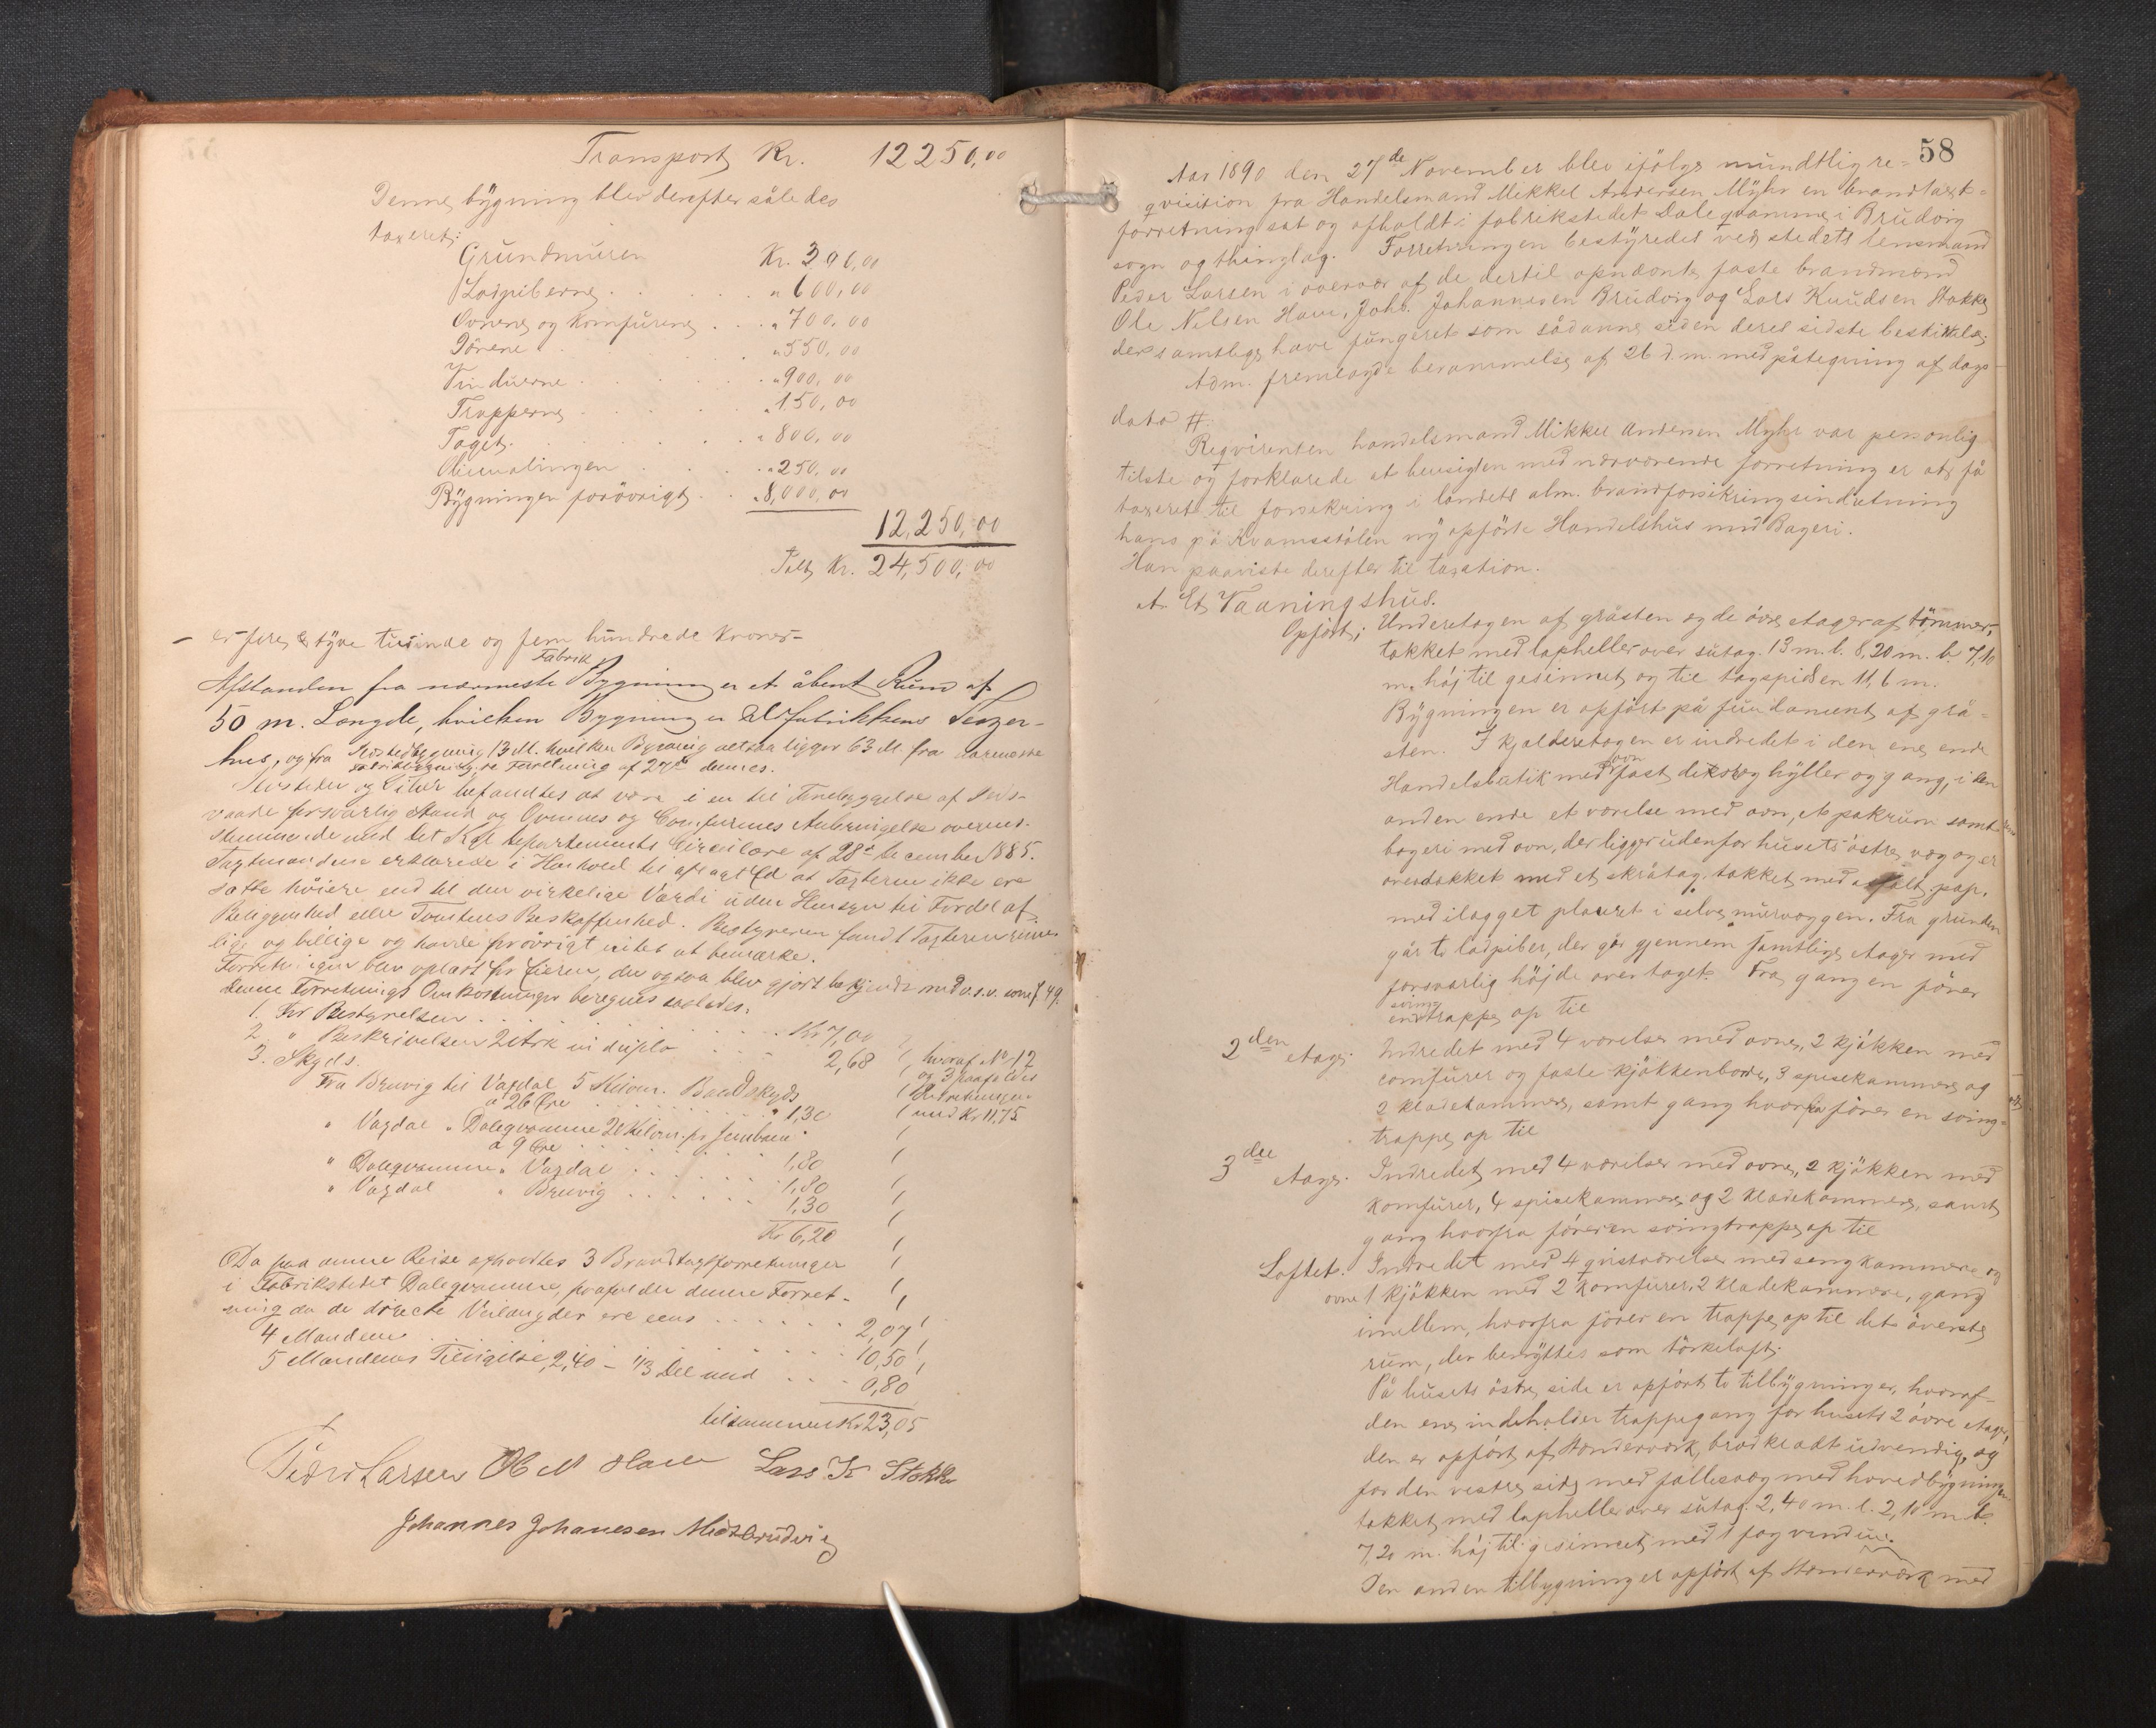 Transport Kr. 12250,00
Denne bygning blev derefter således
taxeret:
Grundmuren Kr. 300,00
Ladpiberne " 600,00
Ovnene og Komfurene " 700,00
Dörene " 550,00
Vinduerne " 900,00
Trapperne " 150,00
Taget " 800,00
Oliemalingen " 250,00
Bygningen forövrigt " 8,000,00
12,250,00
Talt Kr. 24,500,00
– er fire & tyve tusinde og fem hundrede Kroner –
Fabrik
Afstanden fra nærmeste Bygning er et åbent Rum af
50 m. Længde, hvilken Bygning er Uldfabrikkens
hus, og fra Bygning 13 M. hvilken Bygning altsaa ligger 63 M. fra nærmeste
Fabrikbygning, se Forretning af 27de dennes.
Ildsteder og Piber befandtes at være i en til Forebyggelse af Ilds-
vaade forsvarlig Stand og Ovnenes og Comfurernes Anbringelse overens-
stemmende med det Kgl Departements Circulære af 28de December 1885.
Taxtmændene erklærede i Henhold til aflagt Ed at Taxterne ikke ere
satte höiere end til den virkelige Værdi uden Hensyn til Fordel af
Beliggenhed eller Tomtens Beskaffenhed. Bestyreren fandt Taxterne rime-
lige og billige og havde forövrigt intet at bemærke.
Forretningen blev oplæst for Eieren, der ogsaa blev gjort bekjendt med o.s.v. som f. 49.
Denne Forretnings Omkostninger beregnes saaledes:
1. For Bestyrelsen . . . Kr 7,00
2. " Beskrivelsen 2 Ark in duplo . . . 2,68 hvoraf No 1, 2
3. Skyds og 3 paafaldes
Fra Bruvig til Vaxdal 5 Kilom. Baadskyds Rekvirenten
a 26 Öre . . . " 1,30 med Kr 11,75
" Vaxdal " Dalegvamme 20 Kilom. pr Jernbane
a 9 Öre . . . 1,80
" Dalegvamme " Vaxdal . . . 1,80
" Vaxdal " Bruvig . . . 1,30
Kr 6,20
Da paa denne Reise afholdtes 3 Brandtaxtforretninger
i Fabrikstedet Dalegvamme, paafalder denne Forret-
ning da de directe Veilængder ere eens . . . 2,07
4 Mændene . . . 10,50
5 Mændenes Tilsigelse, 2,40 – 1/3 Del med . . . 0,80
tilsammen Kr 23,05
Peder Larsen Ole N Have Lars K Stokke
Johannes Johanesen Midtbrudvig
58
Aar 1890 den 27de November blev ifölge mundtlig re-
qvisition fra Handelsmand Mikkel Andersen Myhr en brandtaxt-
forretning sat og afholdt i fabrikstedet Dalegvamme i Brudvig
sogn og thinglag. Forretningen bestyredes ved stedets lensmand
Peder Larsen i overvær af de dertil opnævnte faste brandmænd
Ole Nelsen Have, Johs. Johannesen Brudvig og Lars Knudsen Stokke
der samtlige have fungeret som sådanne siden deres sidste bestikkelse.
Adm. fremlagde berammelse af 26 d.m. med påtegning af dags
dato #.
Reqvirenten handelsmand Mikkel Andersen Myhr var personlig
tilste og forklarede at hensigten med nærværende forretning er at få
taxeret til forsikring i landets alm. brandforsikringsindretning
hans på Kvamsstölen ny opförte Handelshus med Bageri.
Han paaviste derefter til taxation.
A. Et Vaaningshus.
Opfört; Underetagen af gråsten og de övre etager af tömmer,
tækket med lapheller over sutag. 13 m. l. 8,20 m. b. 7,10
m. höj til gesimset og til tagspidsen 11,6 m.
Bygningen er opfört på fundament af grå-
sten. I kjælderetagen er indredet i den ene ende
Handelsbutik med ovn fast disk og hyller og gang, i den
anden ende et værelse med ovn, et pakrum samt
bageri med ovn, der ligger udenfor husets östre væg og er
overdækket med et skråtag, tækket med asfalt pap.
med ilagget plaseret i selve murvæggen. Fra grunden
går to ladpiber, der går gjennem samtlige etager med
forsvarlig höjde over taget. Fra gangen förer
en svingtrappe op til
2den Etage. Indredet med 4 værelser med ovne, 2 kjökken med
comfurer og faste kjökkenborde, 3 spisekammere og
2 klædekammere, samt gang hvorfra förer en sving-
trappe op til
3die Etage. Indredet med 4 værelser med ovne, 2 kjökken med
komfurer, 4 spisekammere og 2 klædekammere, samt
gang hvorfra förer en svingtrappe op til
Loftet. Indredet med 4 qvistværelser med sengkammere og
ovne 1 kjökken med 2 komfurer, 2 klædekammere, gang
imellem, hvorfra förer en trappe op til det överste
rum, der benyttes som törkeloft.
På husets östre side er opfört to tilbygninger, hvoraf
den ene indeholder trappegang for husets 2 övre etager,
den er opfört af Stænderværk, brædklædt udvendig, og
for den vestre side med fællesvæg med hovedbygningen
tækket med lapheller over sutag. 2,40 m. l. 2,10 m. b.
7,20 m. höj til gesimset med 1 fag vindu.
Den anden tilbygning er opfört af Stænderværk med